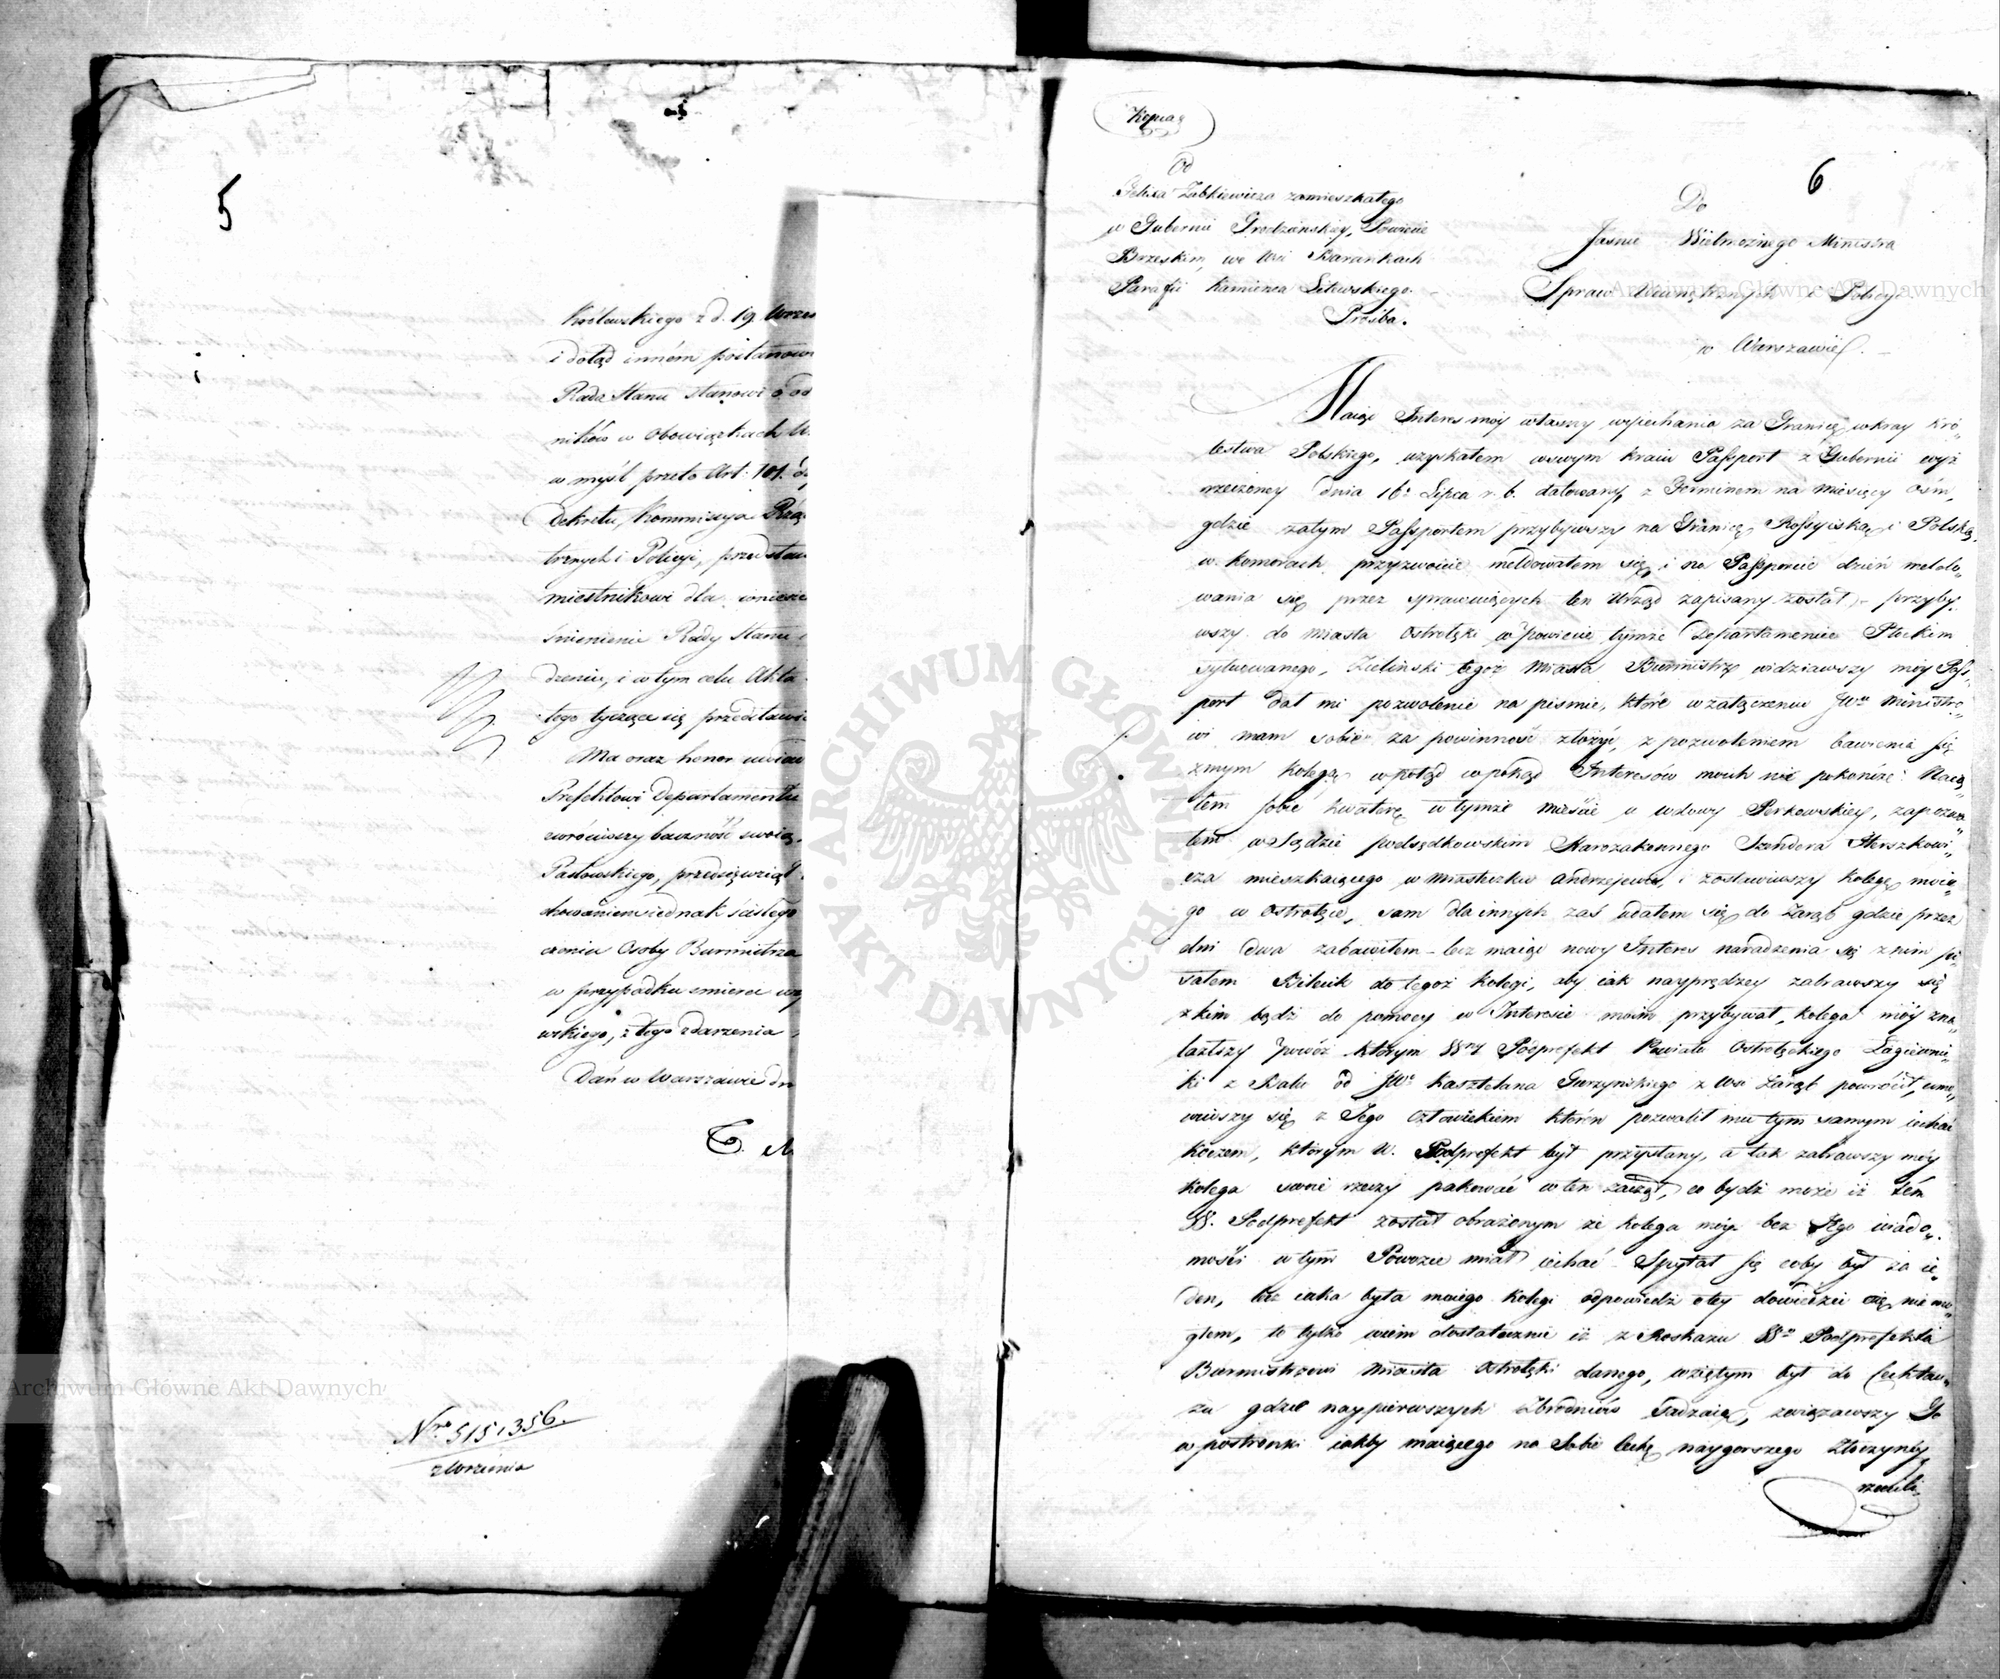 5
Królewskiego z d. 19. Wrze
i dotąd inném postanow
Rada Stanu stanowi o od
ników w obowiązkach U.
w myśl przeto Art: 101.
dekretu, Kommissya Rzą
trznych i Policyi, przedstaw
miestnikowi dla wniesie
śnienienie Rady Stanu
dzeniu, i w tym celu Akta
tego tyczące się przedstawi
Ma oraz honor uwiad
Prefektowi Departamentu
zwróciwszy baczność swoią,
Pasłowskiego, przedsięwziął
chowaniem iednak ścisłego
czenia Osoby Burmistrza
w przypadku śmierci
wskiego, z tego zdarzenia
Dań w Warszawie dn
T. M
Nro 515,356.
z Września
Kopia
6
Od
Felixa Zabkiewicza zamieszkałego
w Gubernii Grodzińskiey, Powiecie
Brzeskim, we Wsi Barankach
Parafii Kamieńca Litewskiego.
Prośba.
Do
Jaśnie Wielmożnego Ministra
Spraw Wewnętrznych Policyi
w Warszawie.
Maiąc Interes móy własny wyjechania za Granicę w kray Kró„
lestwa Polskiego, uzyskałem w swym kraiu Paszport z Gubernii wyż
rzeczoney dnia 16º Lipca r. b. datowany, z Terminem na miesięcy ośm,
gdzie zatym Paszportem przybywszy na Granicę Rossyiską i Polską,
w komorach przyzwoicie meldowałem się, i na Paszporcie dzień meldo„
wania się przez sprawuiących ten Urząd zapisany został – przyby„
wszy do miasta Ostrołęki w powiecie tymże Departamencie Płockim
sytuowanego, Zieliński tegoż Miasta Burmistrz widziawszy móy Pasz„
port dał mi pozwolenie na pismie, które w załączeniu JWu Ministro„
wi mam sobie za powinność złożyć, z pozwoleniem bawienia się
z mym kolegą, wpotąd wpokąd Interesów moich nie pokończę: Naią„
łem sobie kwaterę w tymże mieście u wdowy Perkowskiey, zapozwa„
łem w Sądzie podsędkowskim Starozakonnego Szendera Herszkowi„
cza mieszkaiącego w miasteczku Andrzejewie, i zostawiwszy kolegę moie„
go w Ostrołęce, sam dla innych zaś udałem się do Zaręb gdzie przez
dni dwa zabawiłem – lecz maiąc nowy Interes naradzenia się z nim pi„
sałem Bilecik do tegoż kolegi, aby iak nayprędzey zabrawszy się
z kim bądź do pomocy w Interesie moim przybywał, kolega móy zna„
lazłszy powóz którym W.ny Podprefekt Powiatu Ostrołęckiego Łagiewni„
cki z Balu od JWo Kasztelana Gurzyńskiego z Wsi Zaręb powrócił, umó„
wiwszy się z Jego człowiekiem któren pozwolił mu tym samym iechać
koczem, którym W. Podprefekt był przysłany, a tak zabrawszy móy
kolega swoie rzeczy pakować w ten zaczął, co bydź może iż tém
W. Podprefekt został obrażonym że kolega móy bez Jego wiado„
mości w tym Powozie miał iechać. Spytał się coby był za ie„
den, lecz iaka była moiego kolegi odpowiedź o tey dowiedzieć się nie mo„
głem, to tylko wiem dostatecznie iż z Roskazu Wo Podprefekta
Burmistrzowi Miasta Ostrołęki danego, wziętym był do
gdzie naypierwszych Zbrodniów sadzaią, związawszy Go
w postronki iakby maiącego na Sobie cechę naygorszego Złoczyńcy